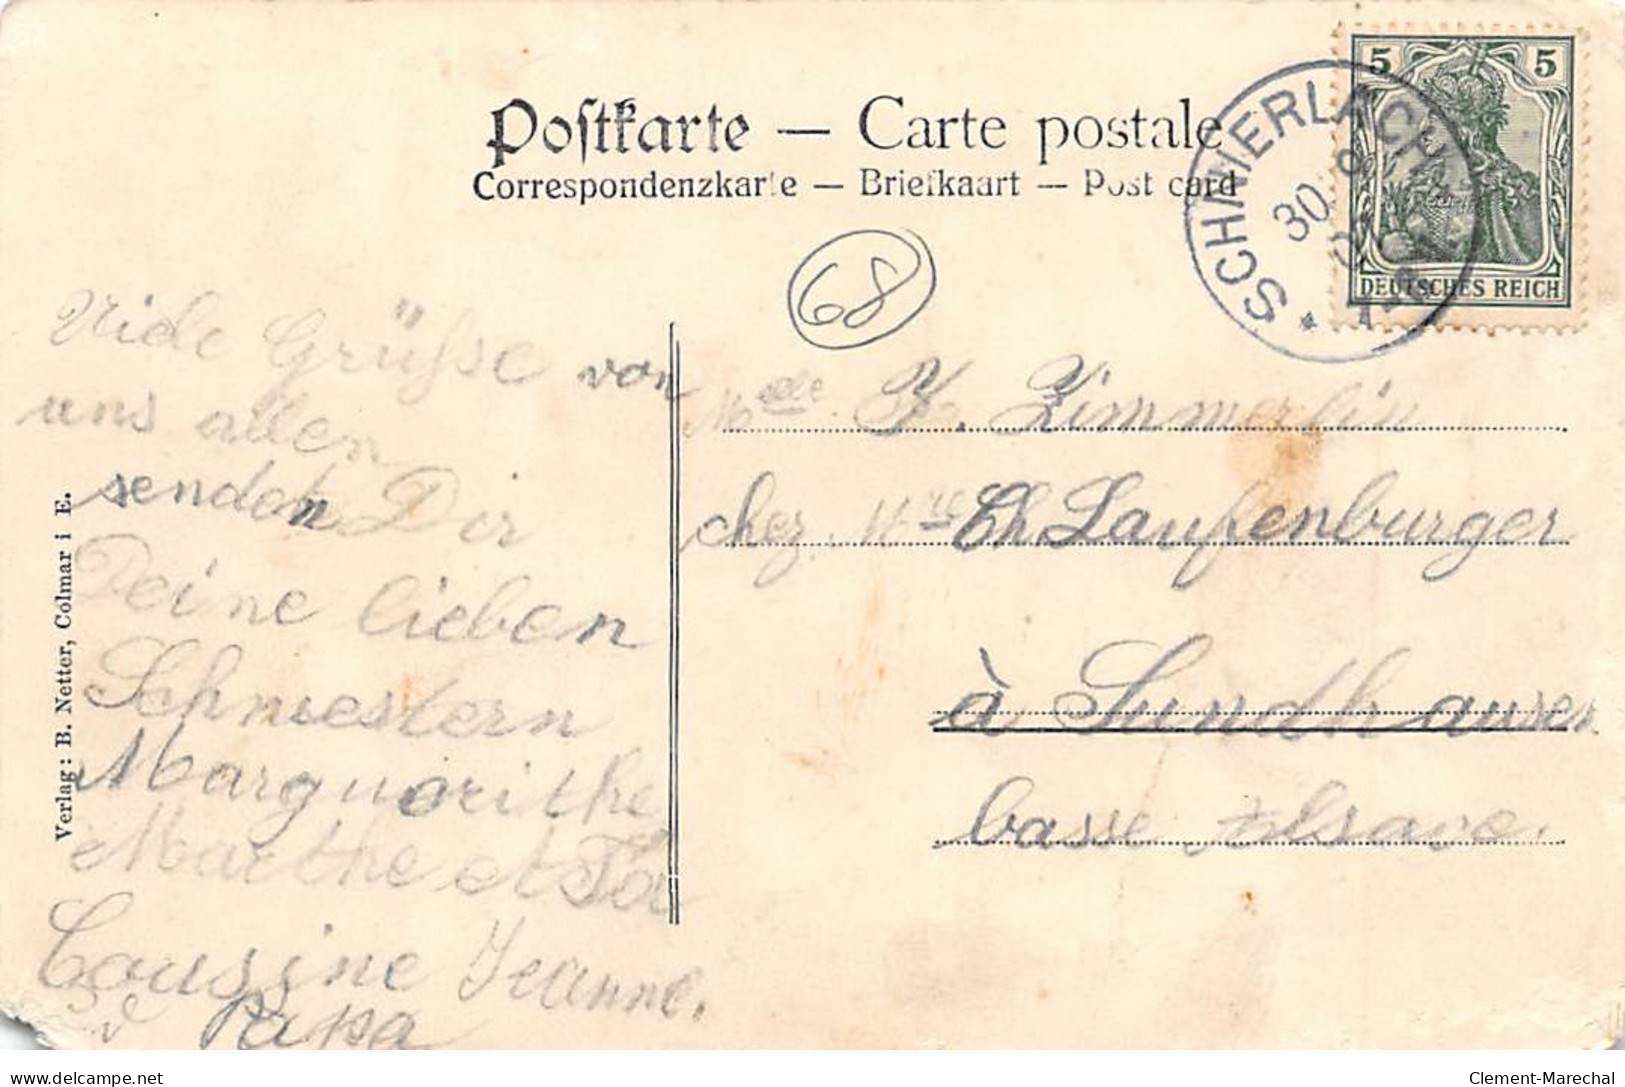 Postkarte — Carte postale
Correspondenzkarte — Briefkaart — Post card
5 5
DEUTSCHES REICH
SCHNIERLACH
30
68
Viele Grüsse von
uns allen
senden Dir
Deine lieben
Schwestern
Marguerithe
Marthe et
Cousine Jeanne.
Papa
Mdelle Zimmerlin
chez Laufenburger
à Sundhausen
basse Alsace.
Verlag: B. Netter, Colmar i E.
Clement-Marechal